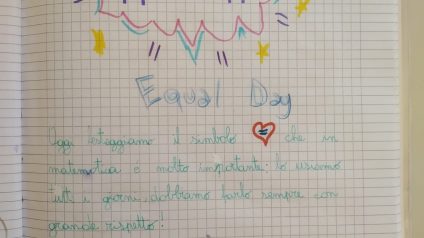 Equal Day
Oggi festeggiamo il simbolo = che in
matematica è molto importante: lo usiamo
tutti i giorni, dobbiamo farlo sempre con
grande rispetto!